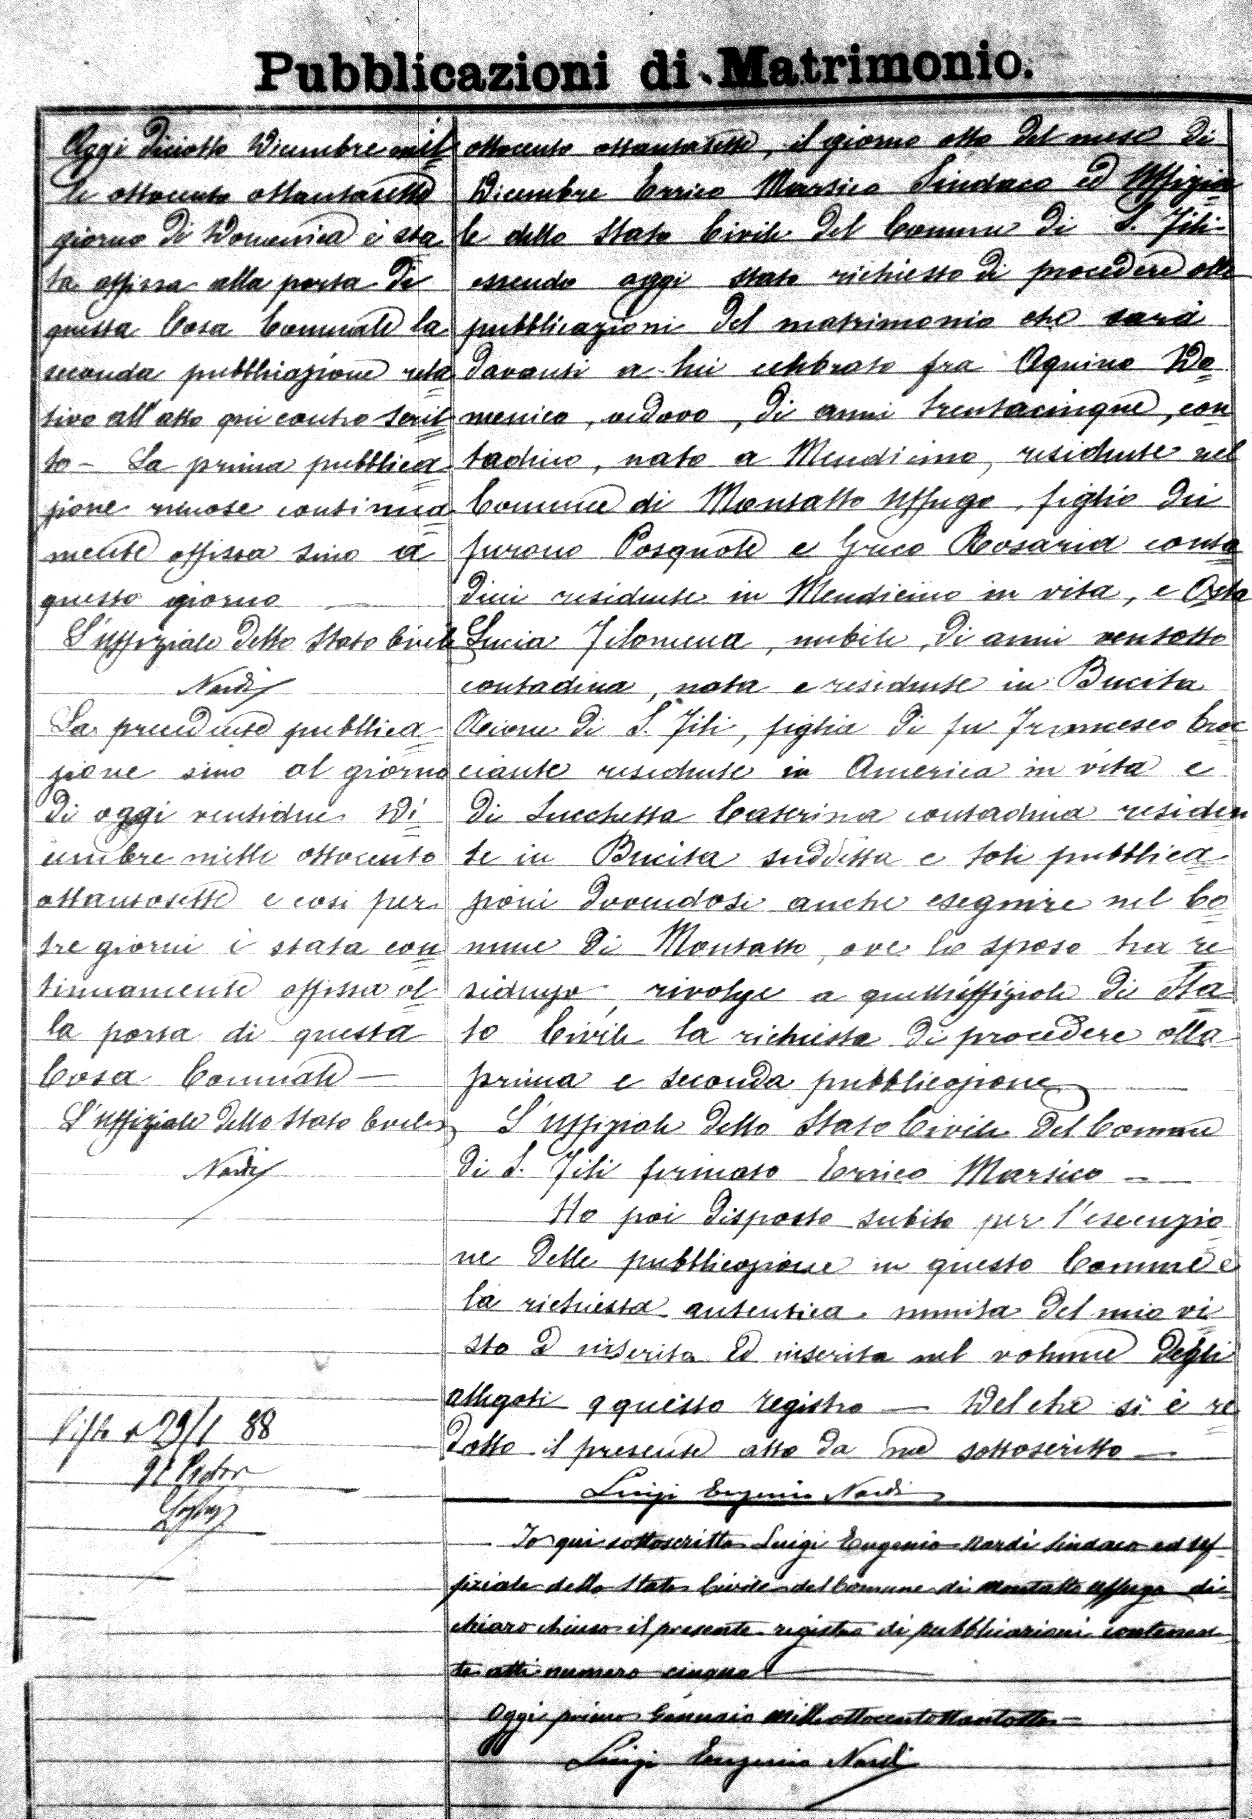 Pubblicazioni di Matrimonio.
Oggi diciotto Dicembre mil
le ottocento ottantasette
giorno di Domenica è sta
ta affissa alla porta di
questa Casa Comunale la
seconda pubblicazione rela
tiva all'atto qui contro scrit
to – La prima pubblica
zione rimase continua
mente affissa sino a
questo giorno
L'Uffiziale dello Stato Civile
Nardi
La precedente pubblica
zione sino al giorno
di oggi ventidue Di
cembre mille ottocento
ottantasette e così per
tre giorni è stata con
tinuamente affissa al
la porta di questa
Casa Comunale –
L'Uffiziale dello Stato Civile
Nardi
29/1 88
Il Pretor
ottocento ottantasette, il giorno otto del mese di
Dicembre Errico Marsico Sindaco ed Uffizia
le dello Stato Civile del Comune di S. Fili
essendo oggi stato richiesto di procedere alle
pubblicazioni del matrimonio che sarà
davanti a lui celebrato fra Aquino Do
menico, vedovo, di anni trentacinque, con
tadino, nato a Mendicino, residente nel
Comune di Montalto Uffugo, figlio dei
furono Pasquale e Greco Rosaria conta
dini residente in Mendicino in vita, e
Lucia Filomena, nubile, di anni ventotto
contadina, nata e residente in Bucita
Rione di S. Fili, figlia di fu Francesco brac
ciante residente in America in vita e
di Lucchetta Caterina contadina residen
te in Bucita suddetta e tali pubblica
zioni dovendosi anche eseguire nel Co
mune di Montalto, ove lo sposo ha re
sidenza, rivolge a quell'uffiziale di Sta
to Civile la richiesta di procedere alla
prima e seconda pubblicazione
L'Uffiziale dello Stato Civile del Comune
di S. Fili firmato Errico Marsico –
Ho poi disposto subito per l'esecuzio
ne delle pubblicazione in questo Comune e
la richiesta autentica munita del mio vi
sto inserita ed inserita nel volume degli
allegati a questo registro – Del che si è re
datto il presente atto da me sottoscritto –
Luigi Eugenio Nardi
Io qui sottoscritto Luigi Eugenio Nardi Sindaco ed Uf
fiziale dello Stato Civile del Comune di Montalto Uffugo di
chiaro chiuso il presente registro di pubblicazioni contenen
te atti numero cinque
Oggi primo Gennaio mille ottocentottantotto –
Luigi Eugenio Nardi